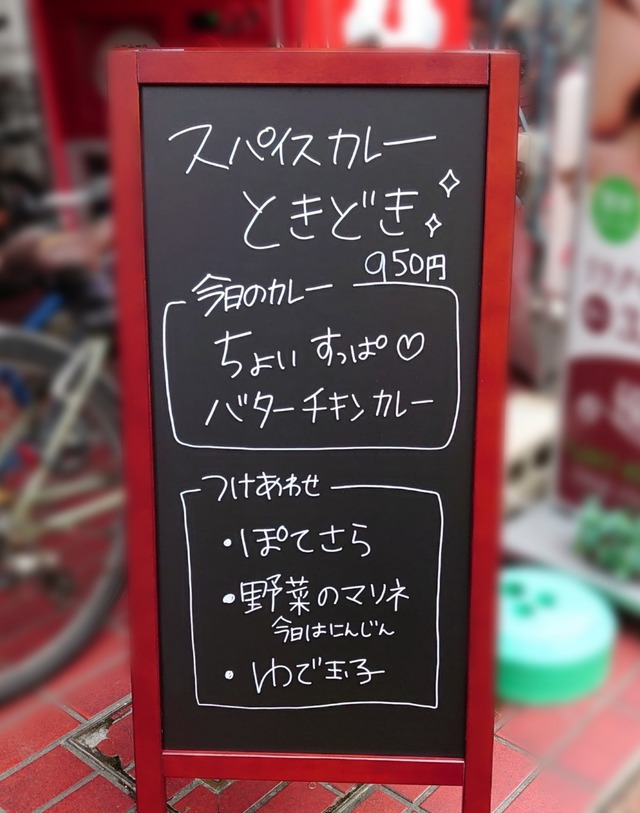 スパイスカレー
ときどき
950円
今日のカレー
ちょい すっぱ♡
バターチキンカレー
つけあわせ
・ぽてさら
・野菜のマリネ
今日はにんじん
・ゆで玉子